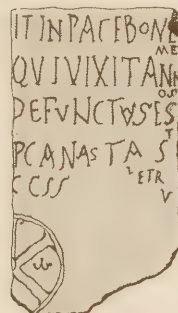 IT IN PACE BONE
ME
QVI VIXIT ANN
OS
DEFVNCTVS ES
T
PC ANASTAS
I ETR
V
C CSS